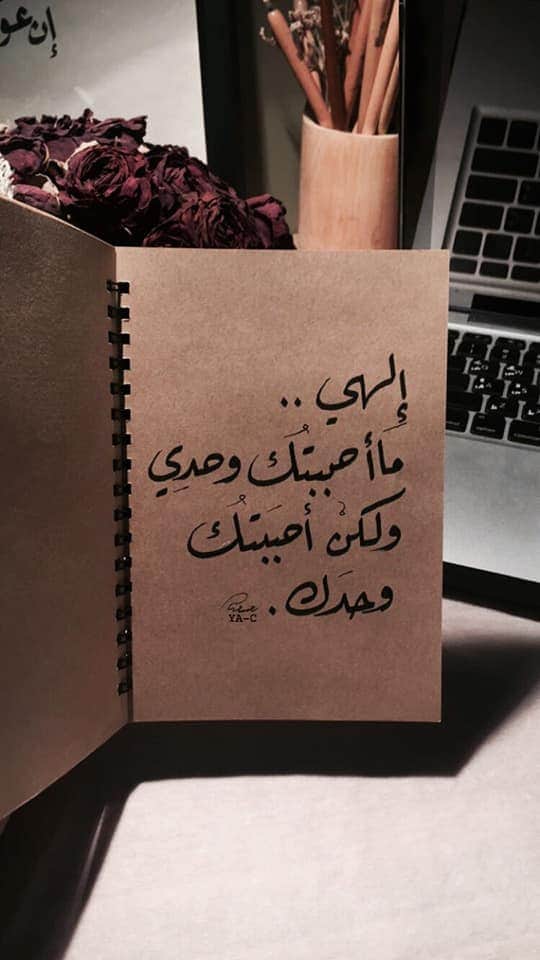 إن عو
إِلهي ..
مَاأحببتُك وحدِي
ولكنْ أحبَبتُك
وحدَك .
YA-C